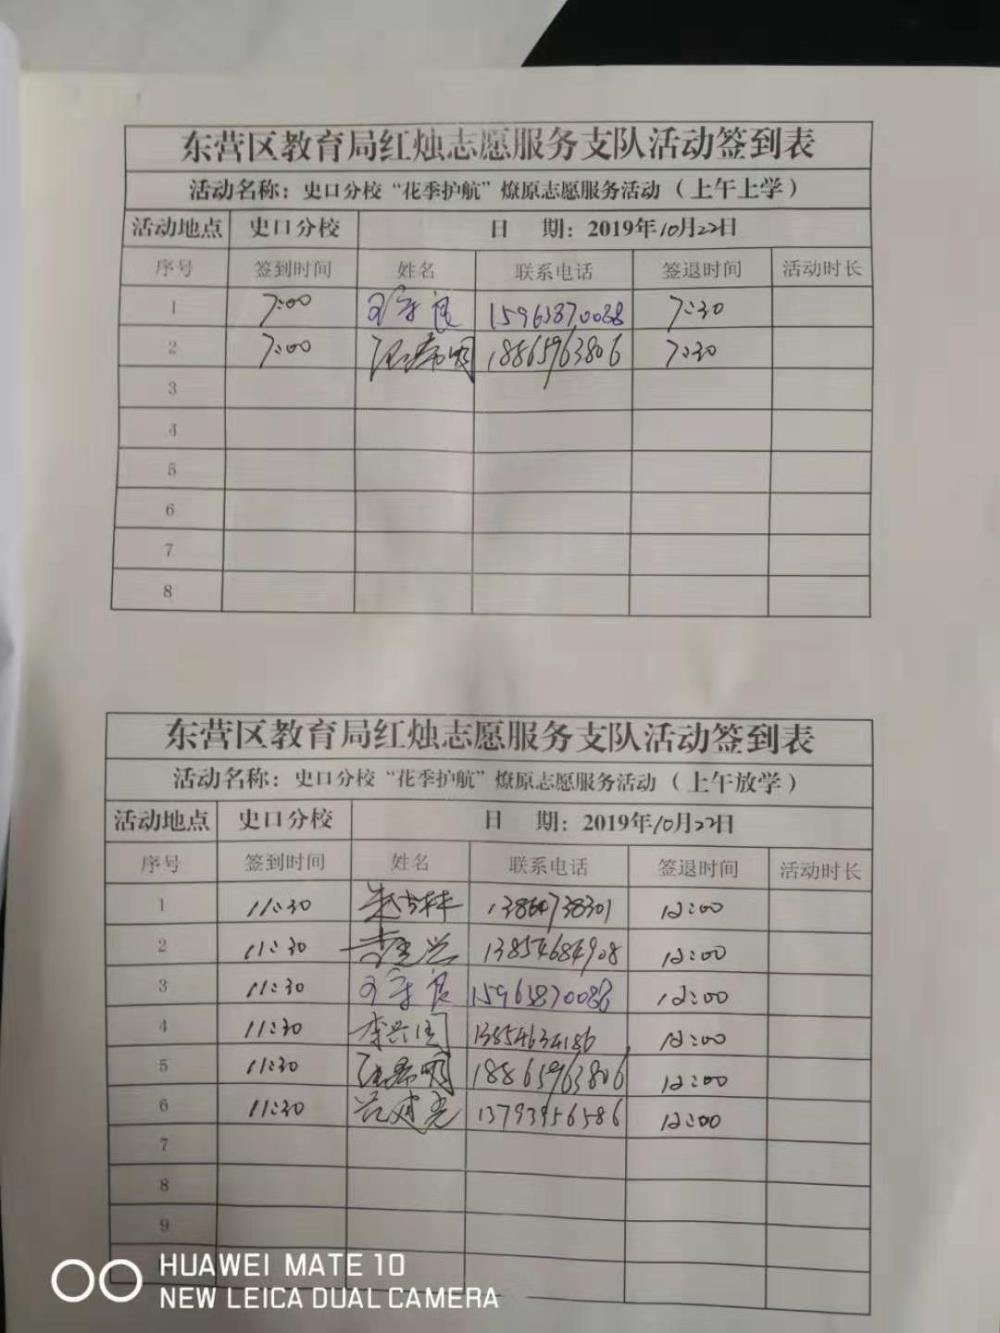 东营区教育局红烛志愿服务支队活动签到表
活动名称：史口分校“花季护航”燎原志愿服务活动（上午上学）
活动地点 史口分校 日 期：2019年10月22日
序号 签到时间 姓名 联系电话 签退时间 活动时长
1 7:00 15963870088 7:30
2 7:00 18865963806 7:30
3
4
5
6
7
8
东营区教育局红烛志愿服务支队活动签到表
活动名称：史口分校“花季护航”燎原志愿服务活动（上午放学）
活动地点 史口分校 日 期：2019年10月22日
序号 签到时间 姓名 联系电话 签退时间 活动时长
1 11:30 12:00
2 11:30 13854684908 12:00
3 11:30 15963870088 12:00
4 11:30 李兴国 13854634186 12:00
5 11:30 18865963806 12:00
6 11:30 13793956586 12:00
7
8
9
HUAWEI MATE 10
NEW LEICA DUAL CAMERA